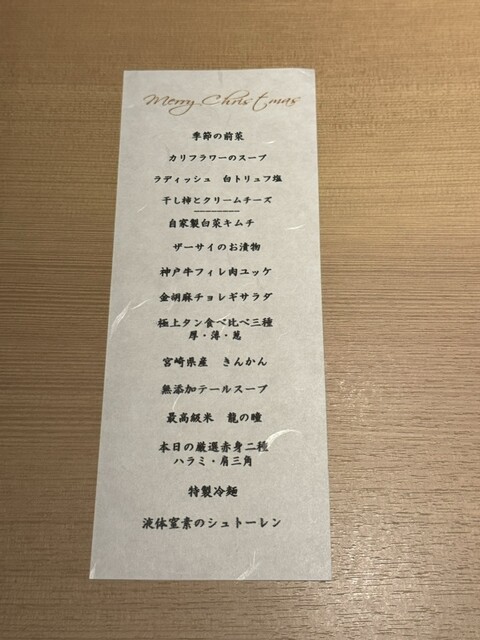 Merry Christmas
季節の前菜
カリフラワーのスープ
ラディッシュ　白トリュフ塩
干し柿とクリームチーズ
自家製白菜キムチ
ザーサイのお漬物
神戸牛フィレ肉ユッケ
金胡麻チョレギサラダ
極上タン食べ比べ三種
厚・薄・葱
宮崎県産　きんかん
無添加テールスープ
最高級米　龍の瞳
本日の厳選赤身二種
ハラミ・肩三角
特製冷麺
液体窒素のシュトーレン